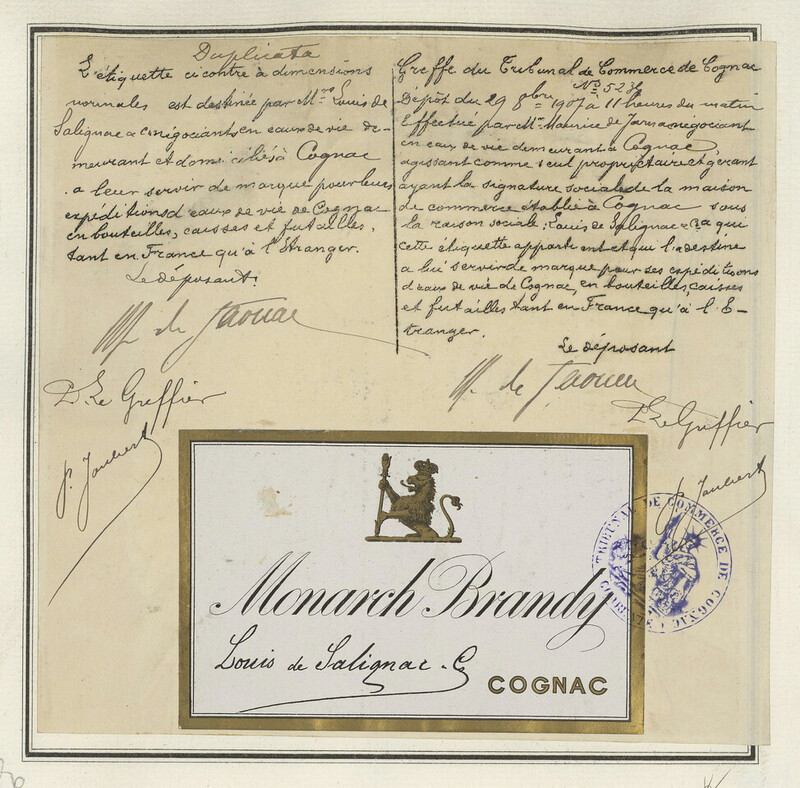 Duplicata
L'étiquette ci contre à dimensions
normales est destinée par Mrs Louis de
Salignac & Co négociants en eaux de vie de-
meurant et domiciliés à Cognac
a leur servir de marque pour leurs
expéditions d'eaux de vie de Cognac
en bouteilles, caisses et futailles,
tant en France qu'à l'Etranger.
Le déposant.
M. de Jarnac
P. Le Greffier
P. Joubert
Greffe du Tribunal de Commerce de Cognac
Nº 523
Dépôt du 29 8bre 1907 à 11 heures du matin
Effectué par Mr Maurice de Jarnac négociant
en eaux de vie demeurant à Cognac,
agissant comme seul propriétaire et gérant
ayant la signature sociale de la maison
de commerce établie à Cognac sous
la raison sociale: Louis de Salignac & Co a qui
cette étiquette appartient et qui l'a destine
a lui servir de marque pour ses expéditions
d'eaux de vie de Cognac, en bouteilles, caisses
et futailles tant en France qu'à l'E-
tranger.
Le déposant
M. de Jarnac
P. Le Greffier
P. Joubert
Monarch Brandy
Louis de Salignac & Co
COGNAC
TRIBUNAL DE COMMERCE DE COGNAC
CHARENTE